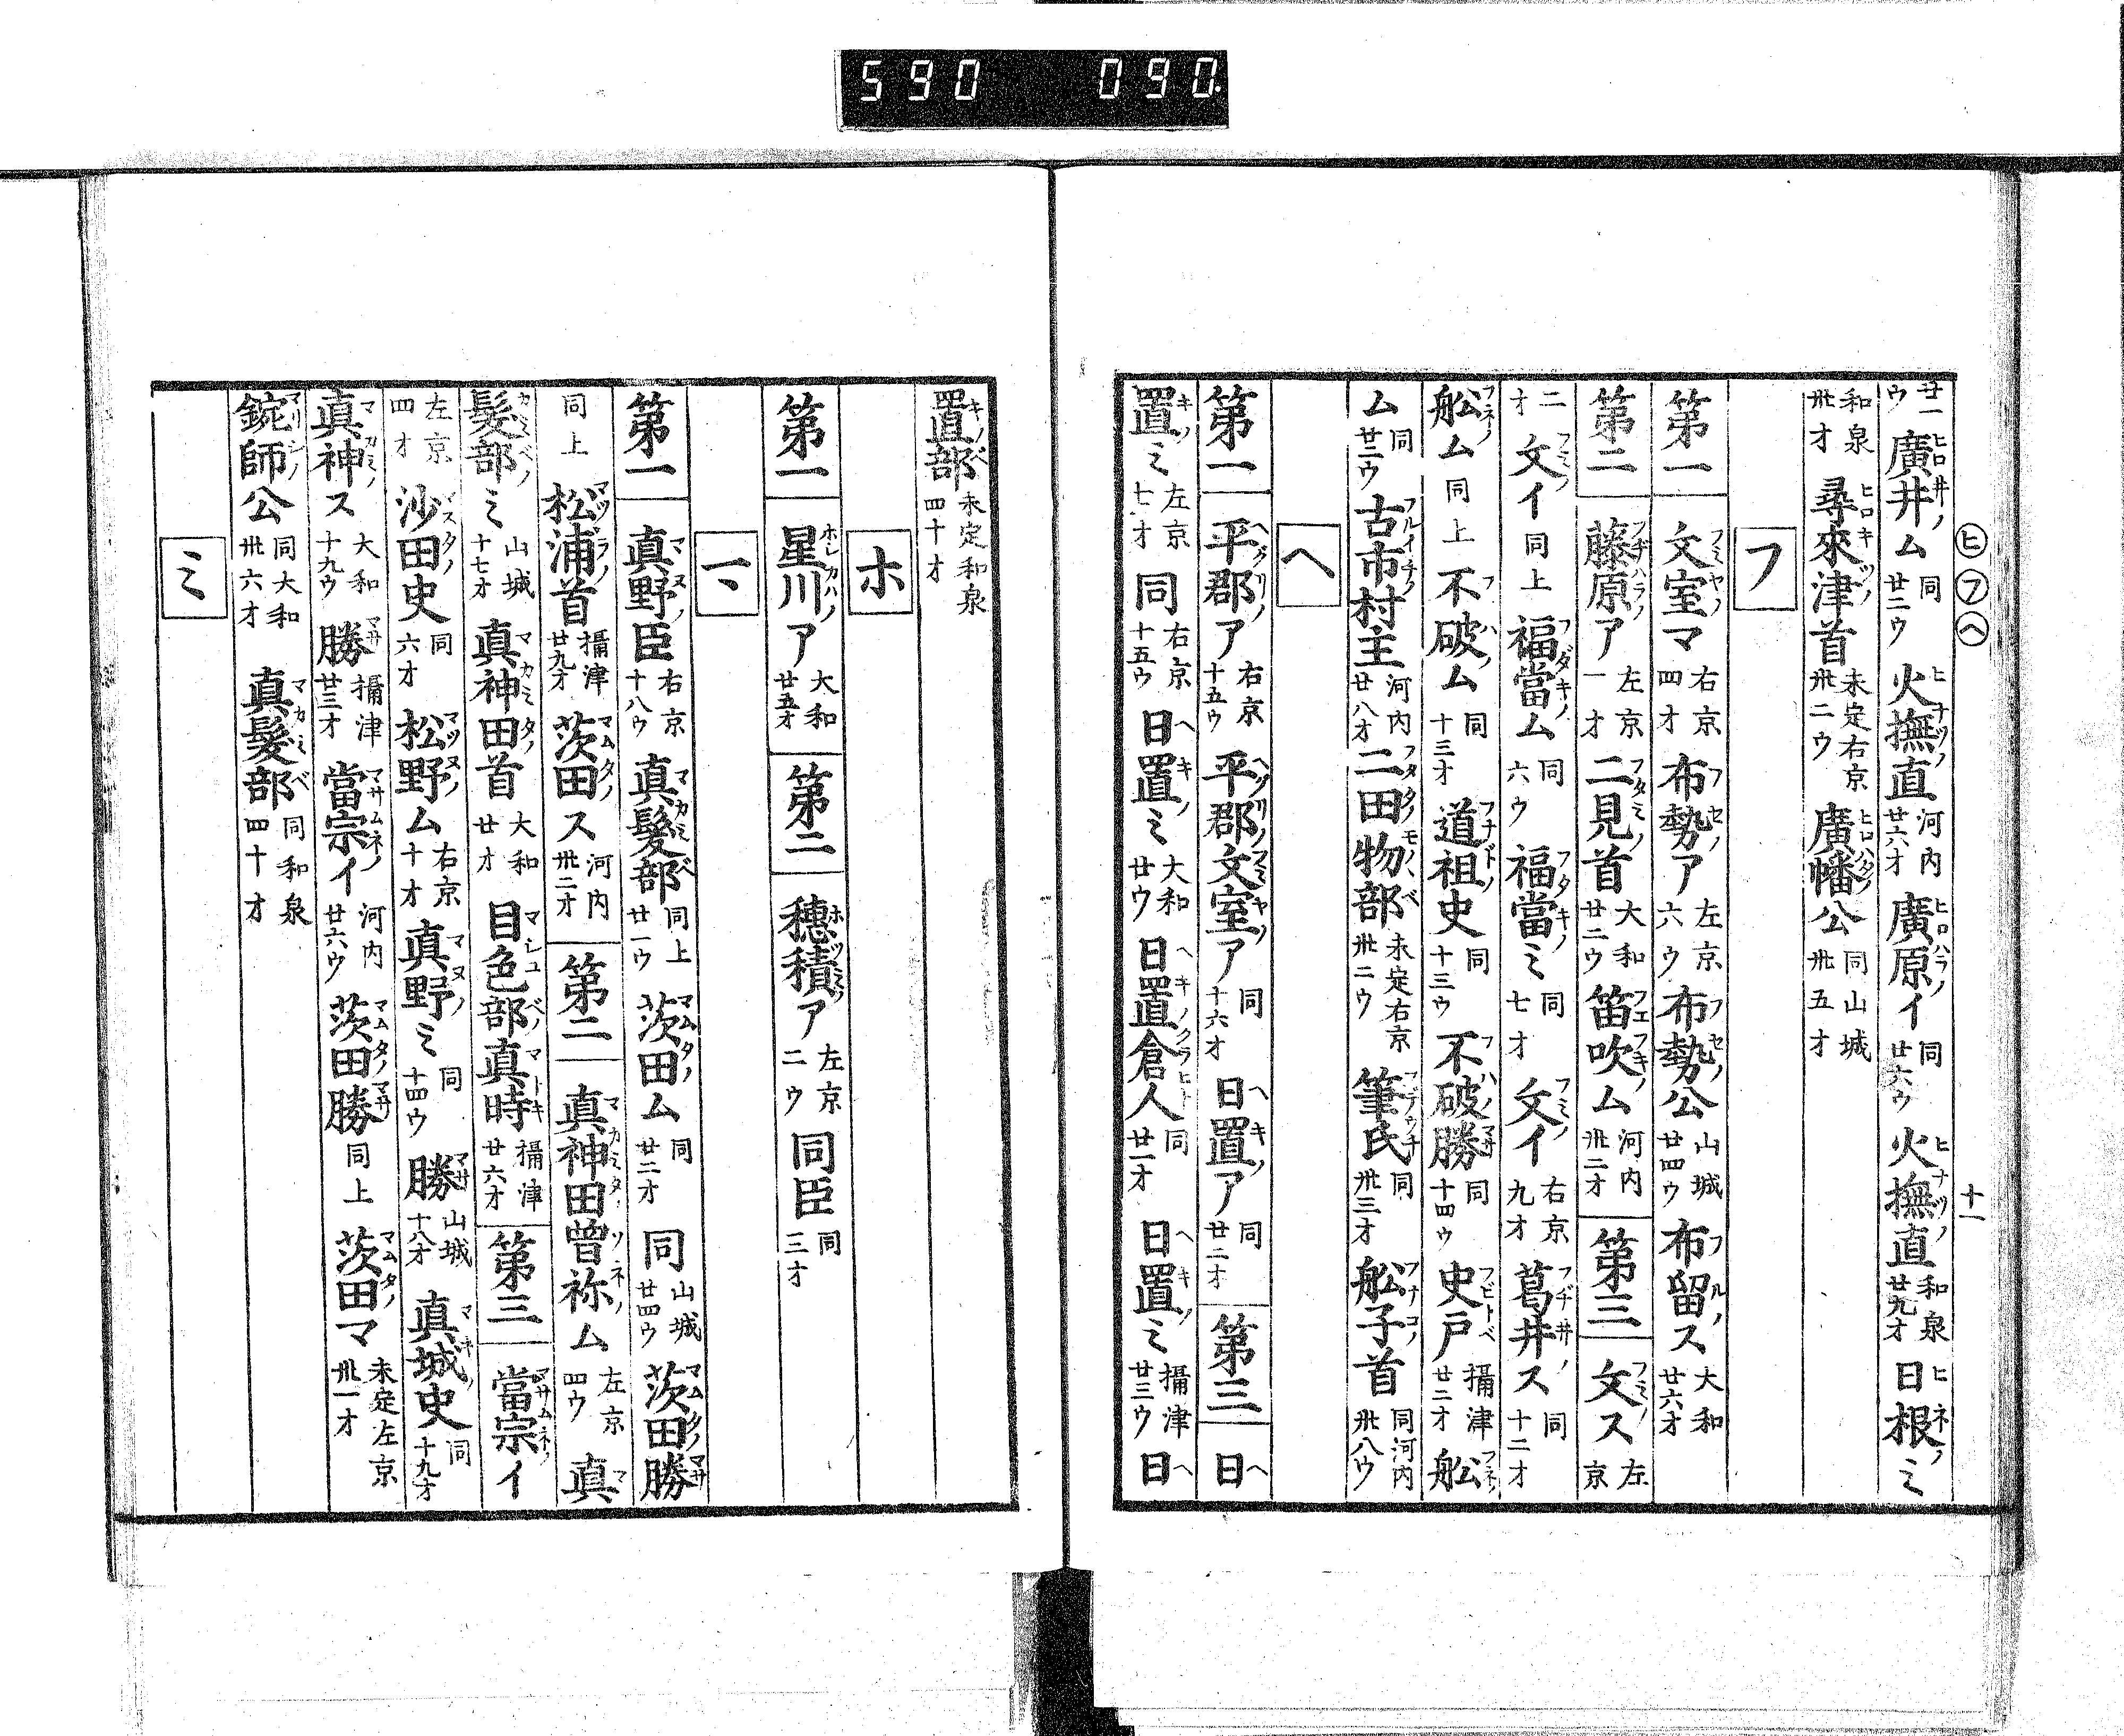 590 090.
ヒ フ ヘ 十一
廿一ウ 廣井ム 同廿二ウ 火撫直 河内廿六オ 廣原イ 同廿六ウ 火撫直 和泉廿九オ 日根ミ
和泉卅オ 尋來津首 未定右京卅二ウ 廣幡公 同山城卅五オ
フ
第一 文室マ 右京四オ 布勢ア 左京六ウ 布勢公 山城廿四ウ 布留ス 大和廿六オ
第二 藤原ア 左京一オ 二見首 大和廿二ウ 笛吹ム 河内卅二オ 第三 文ス 左京
二オ 文イ 同上 福當ム 同六ウ 福當ミ 同七オ 文イ 右京九オ 葛井ス 同十二オ
舩ム 同上 不破ム 同十三オ 道祖史 同十三ウ 不破勝 同十四ウ 史戸 攝津廿二オ 舩
ム 同廿二ウ 古市村主 河内廿八オ 二田物部 未定右京卅二ウ 筆氏 同卅三オ 舩子首 同河内卅八ウ
ヘ
第一 平郡ア 右京十五ウ 平郡文室ア 同十六オ 日置ア 同廿二オ 第三 日
置ミ 左京七オ 同 右京十五ウ 日置ミ 大和廿ウ 日置倉人 同廿一オ 日置ミ 攝津廿三ウ 日
置部 未定和泉四十オ
ホ
第一 星川ア 大和廿五オ 第二 穗積ア 左京二ウ 同臣 同三オ
マ
第一 真野臣 右京十八ウ 真髮部 同上廿一ウ 茨田ム 同廿二オ 同 山城廿四ウ 茨田勝
同上 松浦首 攝津廿九オ 茨田ス 河内卅二オ 第二 真神田曽祢ム 左京四ウ 真
髮部ミ 山城十七オ 真神田首 大和廿オ 目色部真時 攝津廿六オ 第三 當宗イ
左京四オ 沙田史 同六オ 松野ム 右京十オ 真野ミ 同十四ウ 勝 山城十八オ 真城史 同十九オ
真神ス 大和十九ウ 勝 攝津廿三オ 當宗イ 河内廿六ウ 茨田勝 同上 茨田マ 未定左京卅一オ
鋺師公 同大和卅六オ 真髮部 同和泉四十オ
ミ